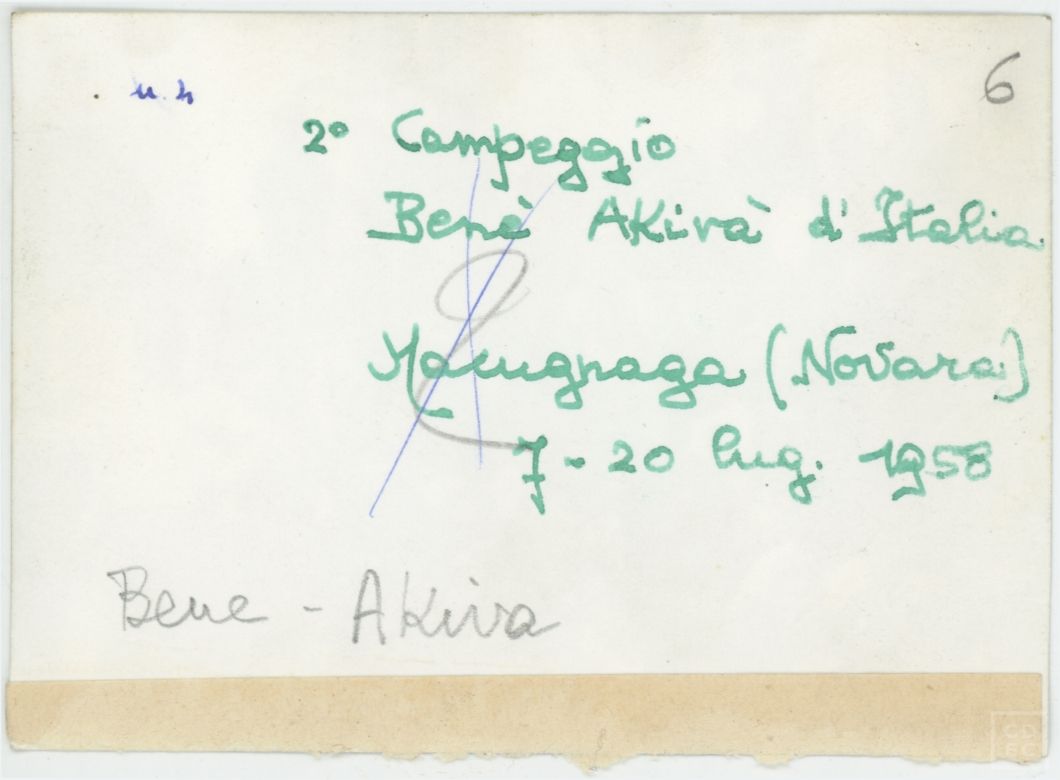 n. 4
6
2° Campeggio
Benè Akivà d'Italia
Macugnaga (Novara)
7-20 lug. 1958
Bene - Akiva
CD
EC